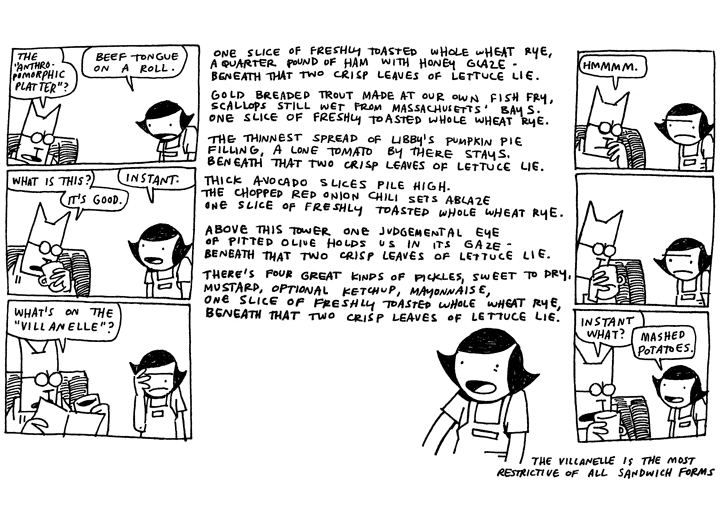 THE
"ANTHRO-
POMORPHIC
PLATTER"?
BEEF TONGUE
ON A ROLL.
WHAT IS THIS?
IT'S GOOD.
INSTANT.
WHAT'S ON THE
"VILLANELLE"?
ONE SLICE OF FRESHLY TOASTED WHOLE WHEAT RYE,
A QUARTER POUND OF HAM WITH HONEY GLAZE -
BENEATH THAT TWO CRISP LEAVES OF LETTUCE LIE.
GOLD BREADED TROUT MADE AT OUR OWN FISH FRY,
SCALLOPS STILL WET FROM MASSACHUSETTS' BAYS.
ONE SLICE OF FRESHLY TOASTED WHOLE WHEAT RYE.
THE THINNEST SPREAD OF LIBBY'S PUMPKIN PIE
FILLING, A LONE TOMATO BY THERE STAYS.
BENEATH THAT TWO CRISP LEAVES OF LETTUCE LIE.
THICK AVOCADO SLICES PILE HIGH.
THE CHOPPED RED ONION CHILI SETS ABLAZE
ONE SLICE OF FRESHLY TOASTED WHOLE WHEAT RYE.
ABOVE THIS TOWER ONE JUDGEMENTAL EYE
OF PITTED OLIVE HOLDS US IN ITS GAZE -
BENEATH THAT TWO CRISP LEAVES OF LETTUCE LIE.
THERE'S FOUR GREAT KINDS OF PICKLES, SWEET TO DRY,
MUSTARD, OPTIONAL KETCHUP, MAYONNAISE,
ONE SLICE OF FRESHLY TOASTED WHOLE WHEAT RYE,
BENEATH THAT TWO CRISP LEAVES OF LETTUCE LIE.
HMMMM.
INSTANT
WHAT?
MASHED
POTATOES.
THE VILLANELLE IS THE MOST
RESTRICTIVE OF ALL SANDWICH FORMS